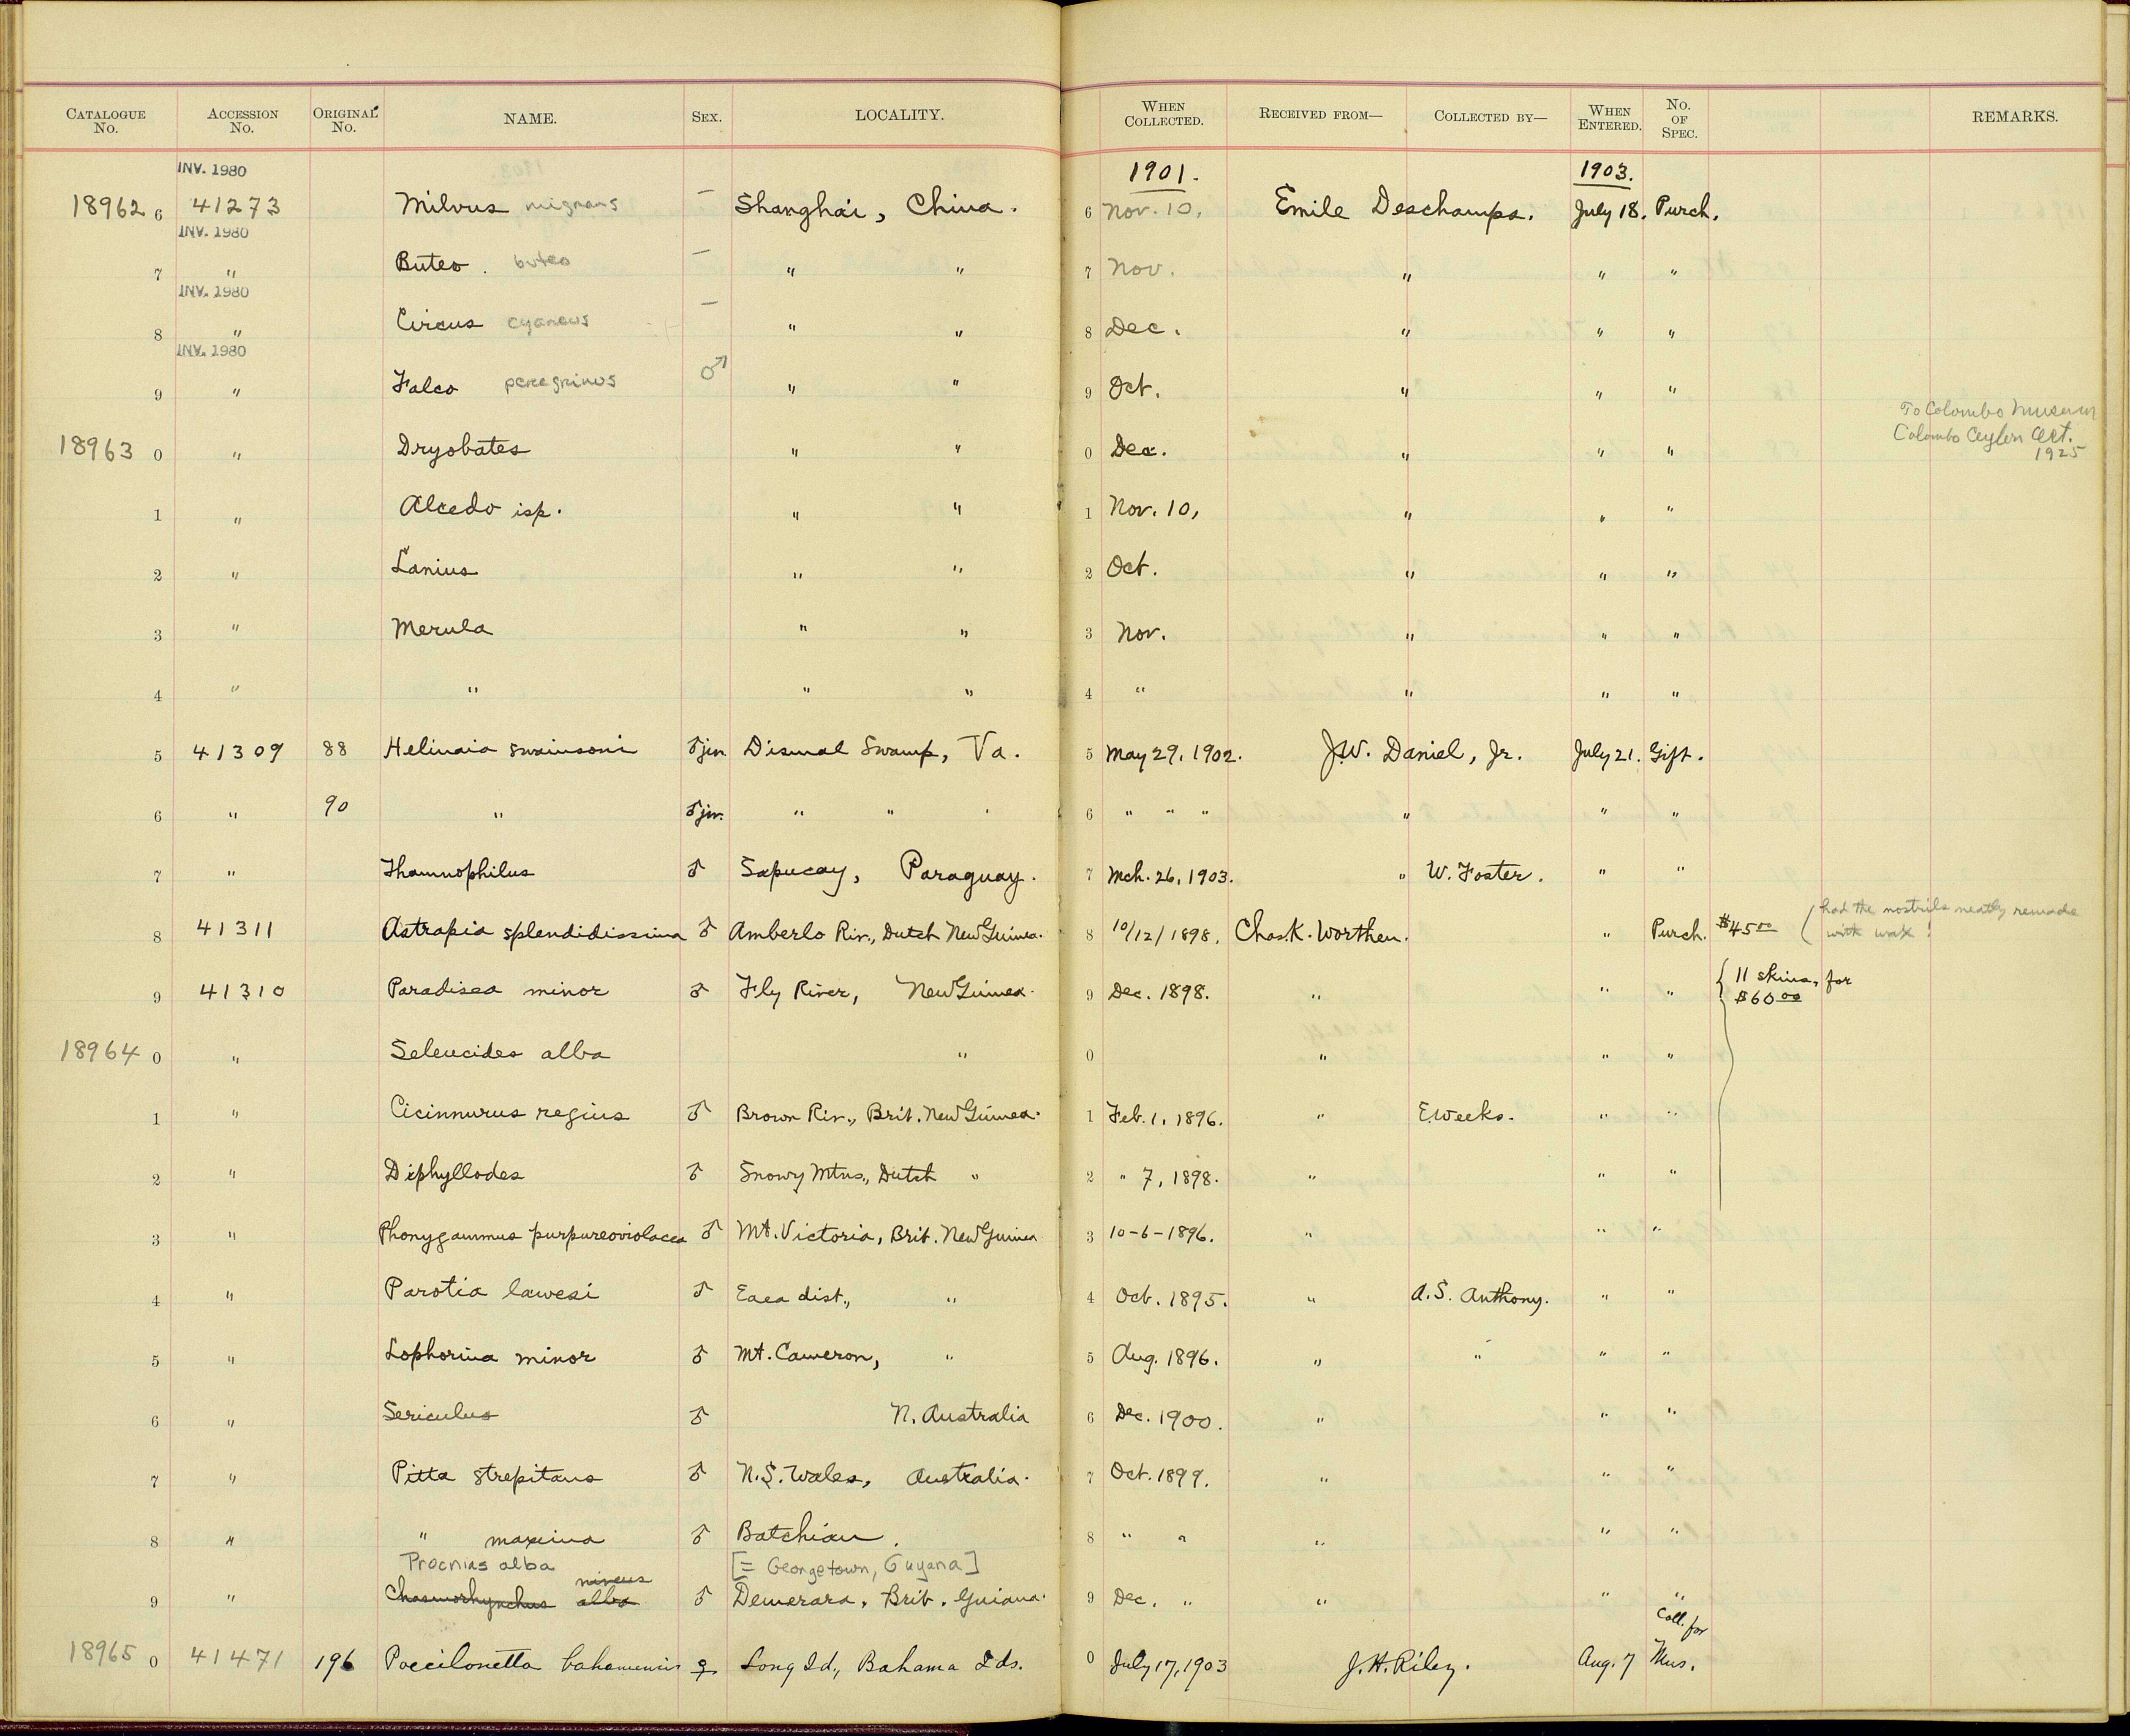 CATALOGUE No. ACCESSION No. ORIGINAL No. NAME. SEX. LOCALITY. WHEN COLLECTED. RECEIVED FROM— COLLECTED BY— WHEN ENTERED. No. OF SPEC. REMARKS.
INV. 1980 1901. 1903.
18962 6 41273 Milvus migrans — Shanghai, China. 6 Nov. 10, Emile Deschamps. July 18. Purch.
INV. 1980
7 " Buteo. buteo — " " 7 Nov. " " "
INV. 1980
8 " Circus cyaneus — " " 8 Dec. " " "
INV. 1980
9 " Falco peregrinus ♂ " " 9 Oct. " " "
To Colombo Museum
Colombo Ceylon Oct.
1925
18963 0 " Dryobates " " 0 Dec. " " "
1 " Alcedo isp. " " 1 Nov. 10, " " "
2 " Lanius " " 2 Oct. " " "
3 " Merula " " 3 Nov. " " "
4 " " " " 4 " " " "
5 41309 88 Helinaia swainsoni ♂ juv. Dismal Swamp, Va. 5 May 29, 1902. J.W. Daniel, Jr. July 21. Gift.
6 " 90 " ♂ juv. " " 6 " " " " " "
7 " Thamnophilus ♂ Sapucay, Paraguay. 7 Mch. 26, 1903. " W. Foster. " "
8 41311 Astrapia splendidissima ♂ Amberlo Riv., Dutch New Guinea. 8 10/12/1898. Chas. K. Worthen. " Purch. $45.00 (had the nostrils neatly remade
with wax!
9 41310 Paradisea minor ♂ Fly River, New Guinea. 9 Dec. 1898. " " " { 11 skins, for
$60.00
18964 0 " Seleucides alba " 0 " " "
1 " Cicinnurus regius ♂ Brown Riv., Brit. New Guinea. 1 Feb. 1, 1896. " E. Weeks. " "
2 " Diphyllodes ♂ Snowy Mtns., Dutch " 2 " 7, 1898. " " "
3 " Phonygammus purpureoviolacea ♂ Mt. Victoria, Brit. New Guinea 3 10-6-1896. " " "
4 " Parotia lawesi ♂ Eaea dist., " 4 Oct. 1895. " A.S. Anthony. " "
5 " Lophorina minor ♂ Mt. Cameron, " 5 Aug. 1896. " " " "
6 " Sericulus ♂ N. Australia 6 Dec. 1900. " " "
7 " Pitta strepitans ♂ N.S. Wales, Australia. 7 Oct. 1899. " " "
8 " " maxima ♂ Batchian. 8 " " " " "
Procnias alba [= Georgetown, Guyana]
niveus
9 " Chasmorhynchus alba ♂ Demerara, Brit. Guiana. 9 Dec. " " " "
Coll. for
18965 0 41471 196 Poecilonetta bahamensis ♀ Long Id., Bahama Ids. 0 July 17, 1903 J.H. Riley. Aug. 7 Mus.